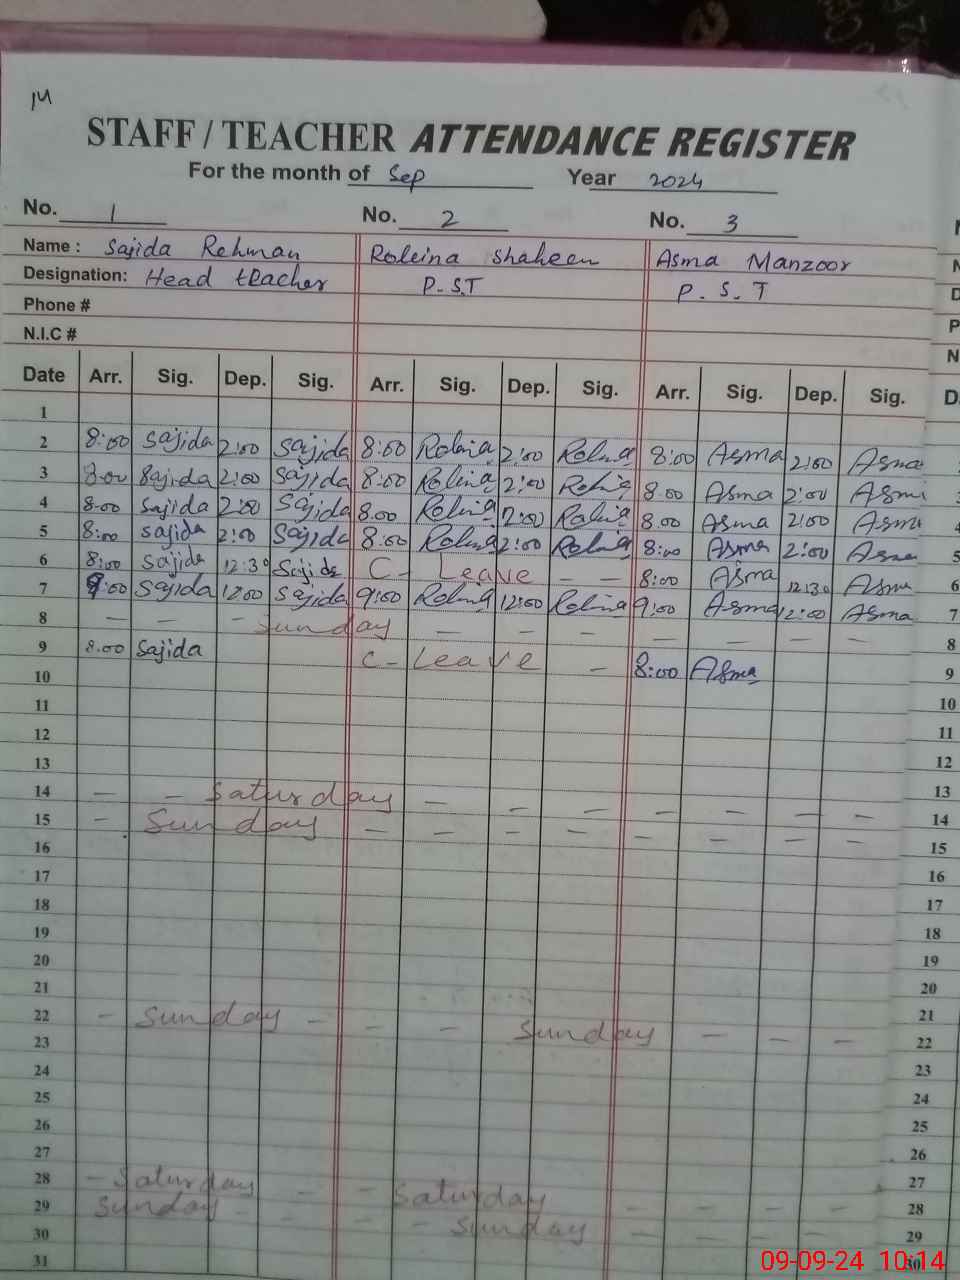 14
STAFF / TEACHER ATTENDANCE REGISTER
For the month of Sep Year 2024
No. 1 No. 2 No. 3
Name : Sajida Rehman Robina Shaheen Asma Manzoor
Designation: Head teacher P.S.T P.S.T
Phone #
N.I.C #
Date Arr. Sig. Dep. Sig. Arr. Sig. Dep. Sig. Arr. Sig. Dep. Sig. D
1
2 8:00 Sajida 2:00 Sajida 8:00 Robina 2:00 Robina 8:00 Asma 2:00 Asma
3 8:00 Sajida 2:00 Sajida 8:00 Robina 2:00 Robina 8:00 Asma 2:00 Asma 3
4 8:00 Sajida 2:00 Sajida 8:00 Robina 2:00 Robina 8:00 Asma 2:00 Asma 4
5 8:00 Sajida 2:00 Sajida 8:00 Robina 2:00 Robina 8:00 Asma 2:00 Asma 5
6 8:00 Sajida 12:30 Sajida C- Leave — — 8:00 Asma 12:30 Asma 6
7 9:00 Sajida 12:00 Sajida 9:00 Robina 12:00 Robina 9:00 Asma 12:00 Asma 7
8 — — - Sunday — — — — — — — — 8
9 8:00 Sajida C- Leave — 8:00 Asma 9
10 10
11 11
12 12
13 13
14 — - Saturday — — — — — — — — 14
15 - Sunday — — — — — — — — 15
16 16
17 17
18 18
19 19
20 20
21 21
22 - Sunday — — — Sunday — — — 22
23 23
24 24
25 25
26 26
27 27
28 - Saturday — — Saturday — — — — 28
29 Sunday - — — — Sunday — — — — 29
30 30
31
09-09-24 10:14